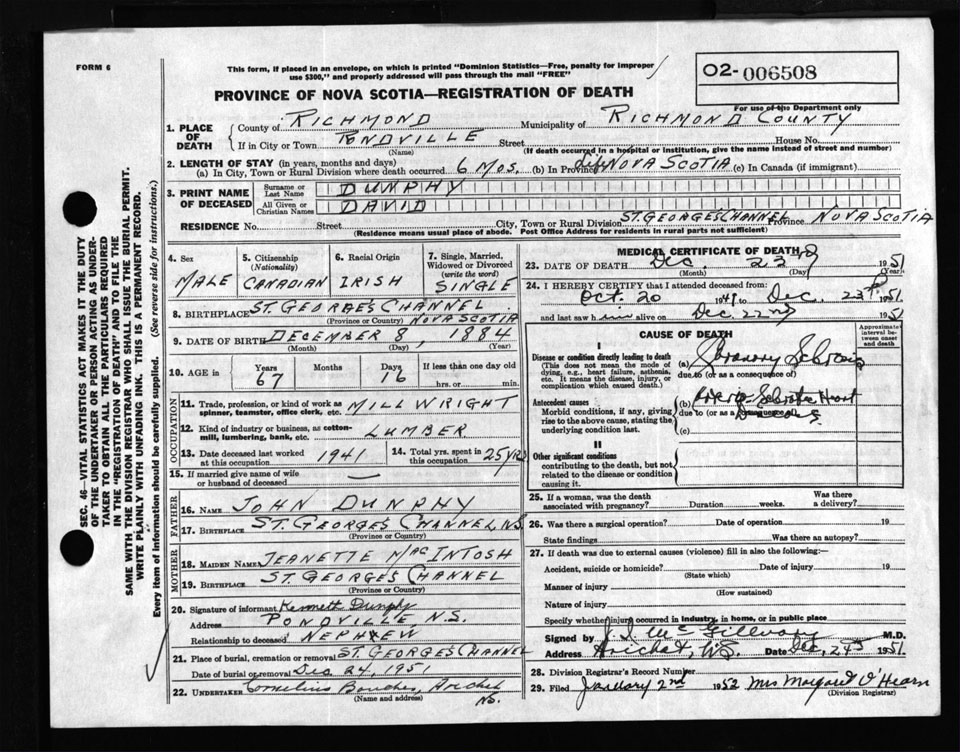 FORM 6
This form, if placed in an envelope, on which is printed "Dominion Statistics—Free, penalty for improper
use $300," and properly addressed will pass through the mail "FREE"
O2-006508
For use of the Department only
PROVINCE OF NOVA SCOTIA—REGISTRATION OF DEATH
1. PLACE OF DEATH
County of RICHMOND Municipality of RICHMOND COUNTY
If in City or Town PONDVILLE Street House No.
(Name) (If death occurred in a hospital or institution, give the name instead of street and number)
2. LENGTH OF STAY (in years, months and days)
(a) In City, Town or Rural Division where death occurred 6 Mos. (b) In Province Life NOVA SCOTIA (c) In Canada (if immigrant)
3. PRINT NAME OF DECEASED
Surname or Last Name DUNPHY
All Given or Christian Names DAVID
RESIDENCE No. Street City, Town or Rural Division ST. GEORGE'S CHANNEL Province NOVA SCOTIA
(Residence means usual place of abode. Post Office Address for residents in rural parts not sufficient)
4. Sex MALE
5. Citizenship (Nationality) CANADIAN
6. Racial Origin IRISH
7. Single, Married, Widowed or Divorced (write the word) SINGLE
8. BIRTHPLACE ST. GEORGES CHANNEL
(Province or Country) NOVA SCOTIA
9. DATE OF BIRTH DECEMBER 8, 1884
(Month) (Day) (Year)
10. AGE in Years 67 Months Days 16 If less than one day old hrs. or min.
OCCUPATION
11. Trade, profession, or kind of work as spinner, teamster, office clerk, etc. MILL WRIGHT
12. Kind of industry or business, as cotton-mill, lumbering, bank, etc. LUMBER
13. Date deceased last worked at this occupation 1941
14. Total yrs. spent in this occupation 25 YRS
15. If married give name of wife or husband of deceased
FATHER
16. Name JOHN DUNPHY
17. Birthplace ST. GEORGES CHANNEL, N.S.
(Province or Country)
MOTHER
18. Maiden Name JEANETTE MACINTOSH
19. Birthplace ST. GEORGES CHANNEL
(Province or Country)
20. Signature of informant Kenneth Dunphy
Address PONDVILLE, N.S.
Relationship to deceased NEPHEW
21. Place of burial, cremation or removal ST. GEORGES CHANNEL
Date of burial or removal Dec 24, 1951
22. UNDERTAKER Cornelius Boucher, Arichat
NS.
MEDICAL CERTIFICATE OF DEATH
23. DATE OF DEATH Dec. 23 1951
(Month) (Day) (Year)
24. I HEREBY CERTIFY that I attended deceased from:
Oct. 20 1949 to Dec. 23rd 1951
and last saw him alive on Dec. 22nd 1951
CAUSE OF DEATH
Approximate interval between onset and death
I
Disease or condition directly leading to death
(This does not mean the mode of dying, e.g., heart failure, asthenia, etc. It means the disease, injury, or complication which caused death.)
(a)
due to (or as a consequence of)
Antecedent causes
Morbid conditions, if any, giving rise to the above cause, stating the underlying condition last.
(b) Heart
due to (or as a consequence of)
(c)
II
Other significant conditions
contributing to the death, but not related to the disease or condition causing it.
25. If a woman, was the death associated with pregnancy? Duration weeks. Was there a delivery?
26. Was there a surgical operation? Date of operation 19
State findings Was there an autopsy?
27. If death was due to external causes (violence) fill in also the following:—
Accident, suicide or homicide? Date of injury 19
(State which)
Manner of injury
(How sustained)
Nature of injury
Specify whether injury occurred in industry, in home, or in public place
Signed by M.D.
Address Arichat, N.S. Date Dec, 24th 1951.
28. Division Registrar's Record Number
29. Filed January 2nd 1952 Mrs Margaret O'Hearn
(Division Registrar)
SEC. 46—VITAL STATISTICS ACT MAKES IT THE DUTY
OF THE UNDERTAKER OR PERSON ACTING AS UNDER-
TAKER TO OBTAIN ALL THE PARTICULARS REQUIRED
IN THE "REGISTRATION OF DEATH" AND TO FILE THE
SAME WITH THE DIVISION REGISTRAR WHO SHALL ISSUE THE BURIAL PERMIT.
WRITE PLAINLY WITH UNFADING INK. THIS IS A PERMANENT RECORD.
Every item of information should be carefully supplied. (See reverse side for instructions.)